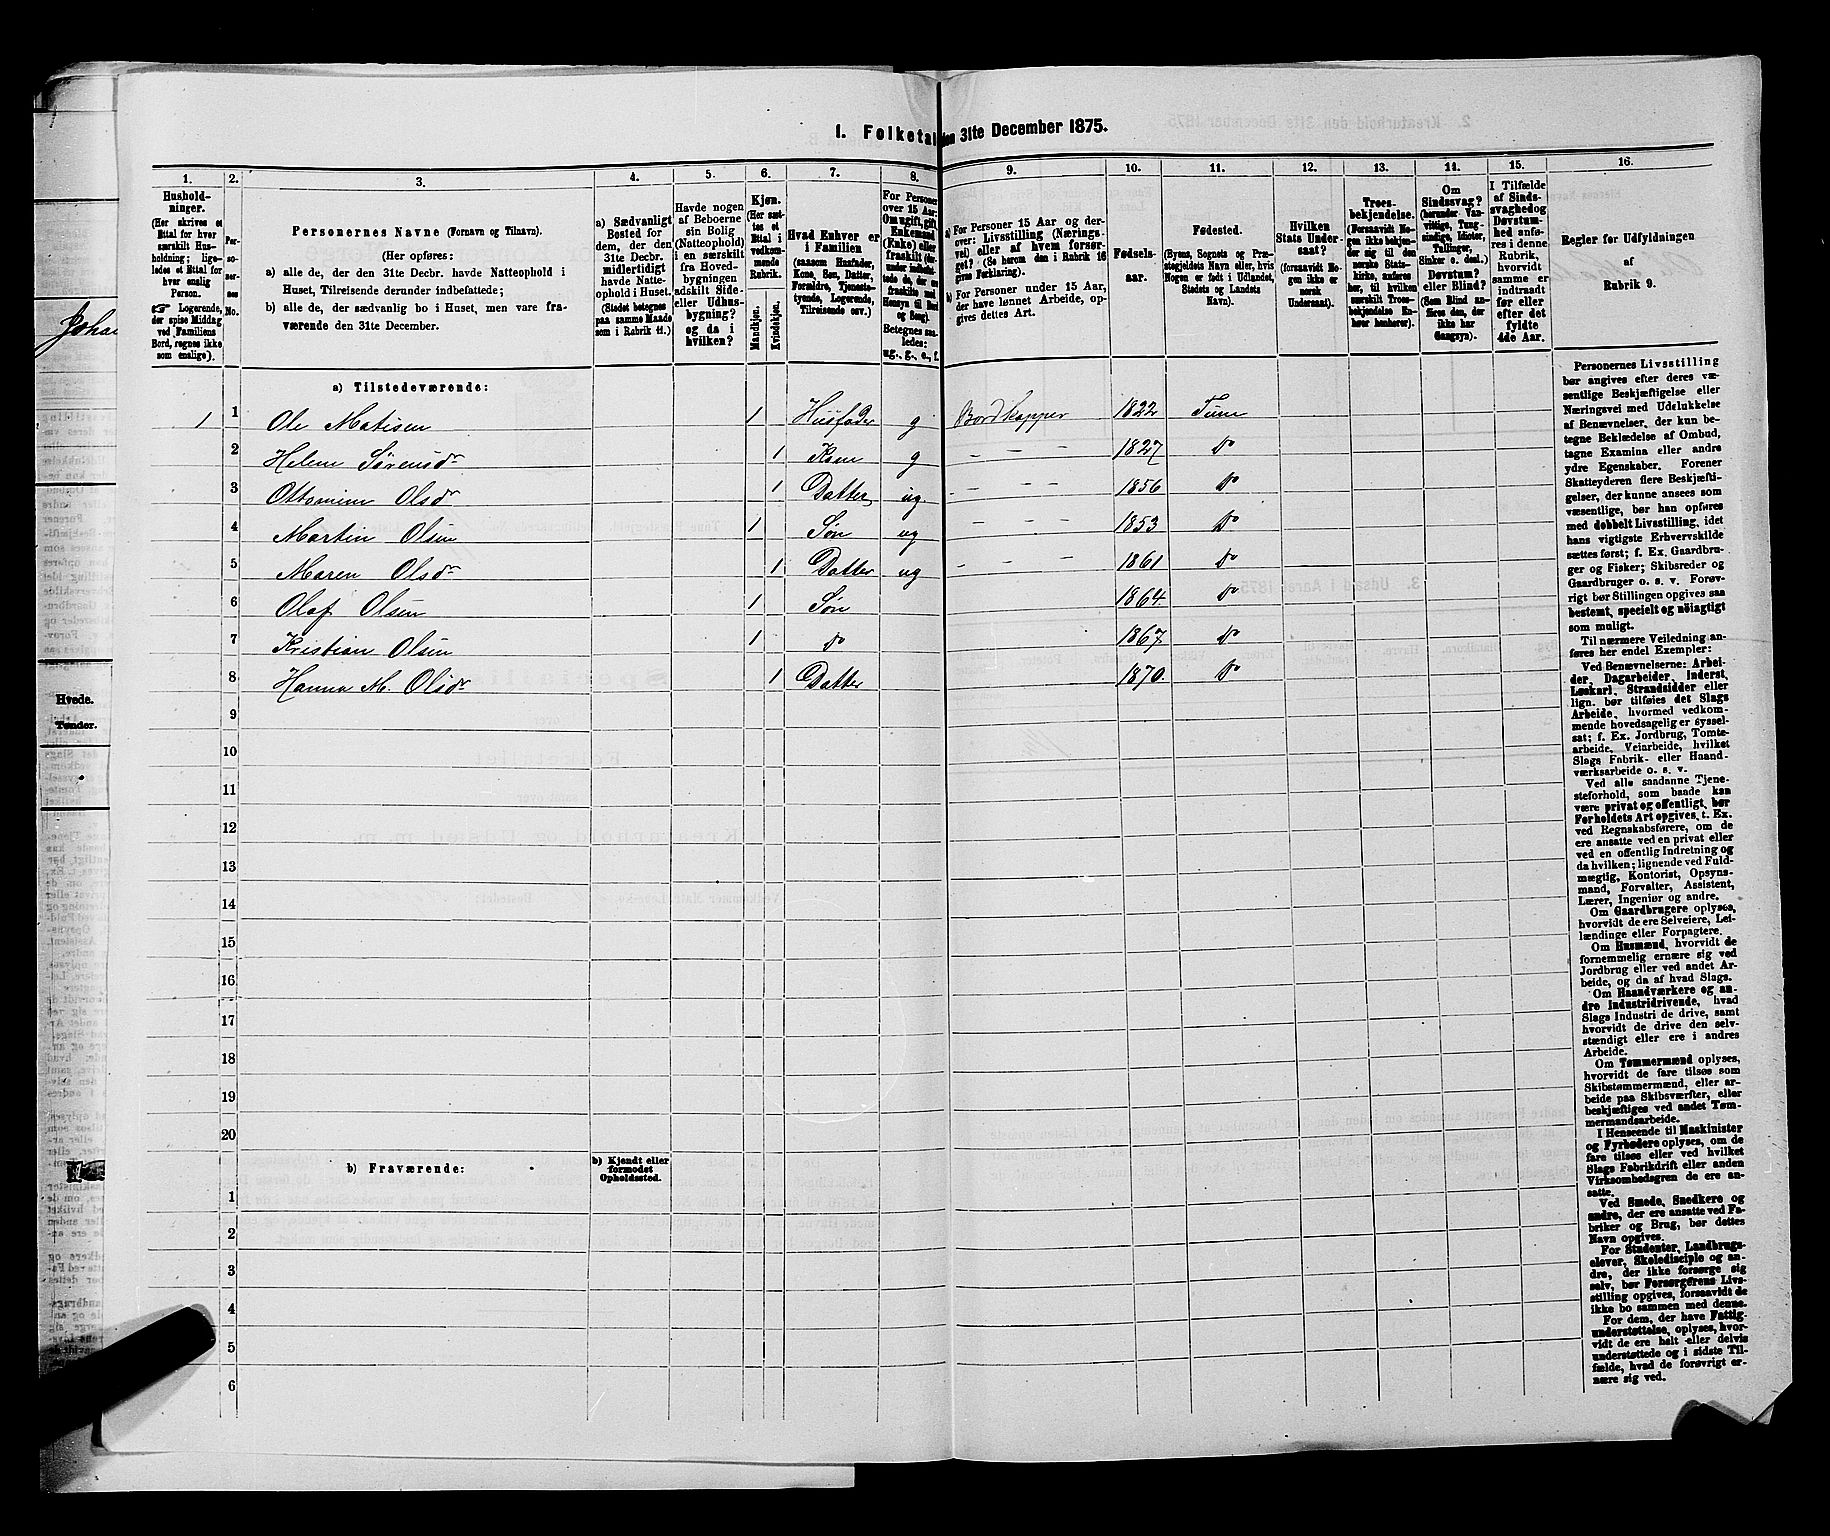 1. Folketal den 31te December 1875.
1. 2. 3. 4. 5. 6. 7. 8. 9. 10. 11. 12. 13. 14. 15. 16.
Husholdninger.
(Her skrives et
Ettal for hver
særskilt Husholdning; ligeledes et Ettal for
hver enslig
Person.
☞ Logerende,
der spise Middag
ved Familiens
Bord, regnes ikke
som enslige).
Personernes No.
Personernes Navne (Fornavn og Tilnavn).
(Her opføres:
a) alle de, der den 31te Decbr. havde Natteophold i
Huset, Tilreisende derunder indbefattede;
b) alle de, der sædvanlig bo i Huset, men vare fraværende den 31te December.
a) Sædvanligt
Bosted for
dem, der den
31te Decbr.
midlertidigt
havde Natteophold i Huset.
(Stedet betegnes
paa samme Maade
som i Rubrik 11.)
Havde nogen
af Beboerne
sin Bolig
(Natteophold)
i en særskilt
fra Hovedbygningen
adskilt Side-
eller Udhusbygning?
og da i
hvilken?
Kjøn.
(Her sættes et
Ettal i
vedkommende
Rubrik.
Mandkjøn.
Kvindekjøn.
Hvad Enhver er
i Familien
(saasom Husfader,
Kone, Søn, Datter,
Forældre, Tjenestetyende, Logerende,
Tilreisende osv.)
For Personer
over 15 Aar:
Om ugift, gift,
Enkemand
(Enke) eller
fraskilt
Betegnes saaledes:
ug., g., e., f.
a) For Personer 15 Aar og derover: Livsstilling (Næringsvei) eller af hvem forsørget? (Se herom den i Rubrik 16
givne Forklaring).
b) For Personer under 15 Aar,
der have lønnet Arbeide, opgives dettes Art.
Fødselsaar.
Fødested.
(Byens, Sognets og Præstegjeldets Navn eller, hvis
Nogen er født i Udlandet,
Stedets og Landets
Navn).
Hvilken
Stats Undersaat?
(forsaavidt Nogen ikke er
norsk
Undersaat).
Troesbekjendelse.
(Forsaavidt Nogen ikke bekjender sig til den
norske Statskirke, anføres
her, til hvilken
særskilt Troesbekjendelse
Enhver henhører).
Om
Sindssvag?
(herunder Vanvittige, Tungsindige, Idioter,
Tullinger,
Sinker o. desl.)
Døvstum?
eller Blind?
(Som Blind anføres den, der
ikke har
Gangsyn).
I Tilfælde
af Sindssvaghed og
Døvstumhed anføres i denne
Rubrik,
hvorvidt
samme er
indtraadt
før eller
efter det
fyldte
4de Aar.
Regler for Udfyldningen
af
Rubrik 9.
a) Tilstedeværende:
1 1 Ole Matisen 1 Husfader g Bordkapper 1822 Tune
2 Helene Sørensdr 1 Kone g — — — 1827 Do
3 Ottomine Olsdr 1 Datter ug. — — — 1856 Do
4 Martin Olsen 1 Søn ug — — — 1853 Do
5 Maren Olsdr 1 Datter ug — — — 1861 Do
6 Olaf Olsen 1 Søn 1864. Do
7 Kristian Olsen 1 Do 1867. Do
8 Hanna M. Olsdr 1 Datter 1870. Do
9
10
11
12
13
14
15
16
17
18
19
20
b) Fraværende:
b) Kjendt eller
formodet
Opholdssted.
1
2
3
4
5
6
Personernes Livsstilling
bør angives efter deres væsentlige Beskjæftigelse eller
Næringsvei med Udelukkelse
af Benævnelser, der kun betegne Beklædelse af Ombud,
tagne Examina eller andre
ydre Egenskaber. Forener
Skatteyderen flere Beskjæftigelser, der kunne ansees som
væsentlige, bør han opføres
med dobbelt Livsstilling, idet
hans vigtigste Erhvervskilde
sættes først; f. Ex. Gaardbruger og Fisker; Skibsreder og
Gaardbruger o. s. v. Forøvrigt bør Stillingen opgives saa
bestemt, specielt og nöiagtigt
som muligt.
Til nærmere Veiledning anføres her endel Exempler:
Ved Benævnelserne: Arbeider, Dagarbeider, Inderst,
Løskarl, Strandsidder eller
lign. bør tilføies det Slags
Arbeide, hvormed vedkommende hovedsagelig er sysselsat; f. Ex. Jordbrug, Tomtearbeide, Veiarbeide, hvilket
Slags Fabrik- eller Haandværksarbeide o. s. v.
Ved alle saadanne Tjenesteforhold, som baade kan
være privat og offentligt, bør
Forholdets Art opgives, t. Ex.
ved Regnskabsførere, om de
ere ansatte ved en privat eller
ved en offentlig Indretning og
da hvilken; lignende ved Fuldmægtig, Kontorist, Opsynsmand, Forvalter, Assistent,
Lærer, Ingeniør og andre.
Om Gaardbrugere oplyses,
hvorvidt de ere Selveiere, Leilændinge eller Forpagtere.
Om Husmænd, hvorvidt de
fornemmelig ernære sig ved
Jordbrug eller ved andet Arbeide, og da af hvad Slags.
Om Haandværkere og andre Industridrivende, hvad
Slags Industri de drive, samt
hvorvidt de drive den selvstændigt eller ere i andres
Arbeide.
Om Tømmermænd oplyses,
hvorvidt de fare tilsøs som
Skibstømmermænd, eller arbeide paa Skibsværfter, eller
beskjæftiges ved andet Tømmermandsarbeide.
I Henseende til Maskinister
og Fyrbødere oplyses, om de
fare tilsøs eller ved hvilket
Slags Fabrikdrift eller anden
Virksomhedsgren de ere ansatte.
Ved Smede, Snedkere og
andre, der ere ansatte ved Fabriker og Brug, bør dettes
Navn opgives.
For Studenter, Landbrugselever, Skoledisciple og andre, der ikke forsørge sig
selv, bør Forsørgerens Livsstilling opgives, forsaavidt de
ikke bo sammen med denne.
For dem, der have Fattigunderstøttelse, oplyses, hvorvidt de ere helt eller delvis
understøttede og i sidste Tilfælde, hvad de forøvrigt ernære sig ved.
Hvede.
Tønder.